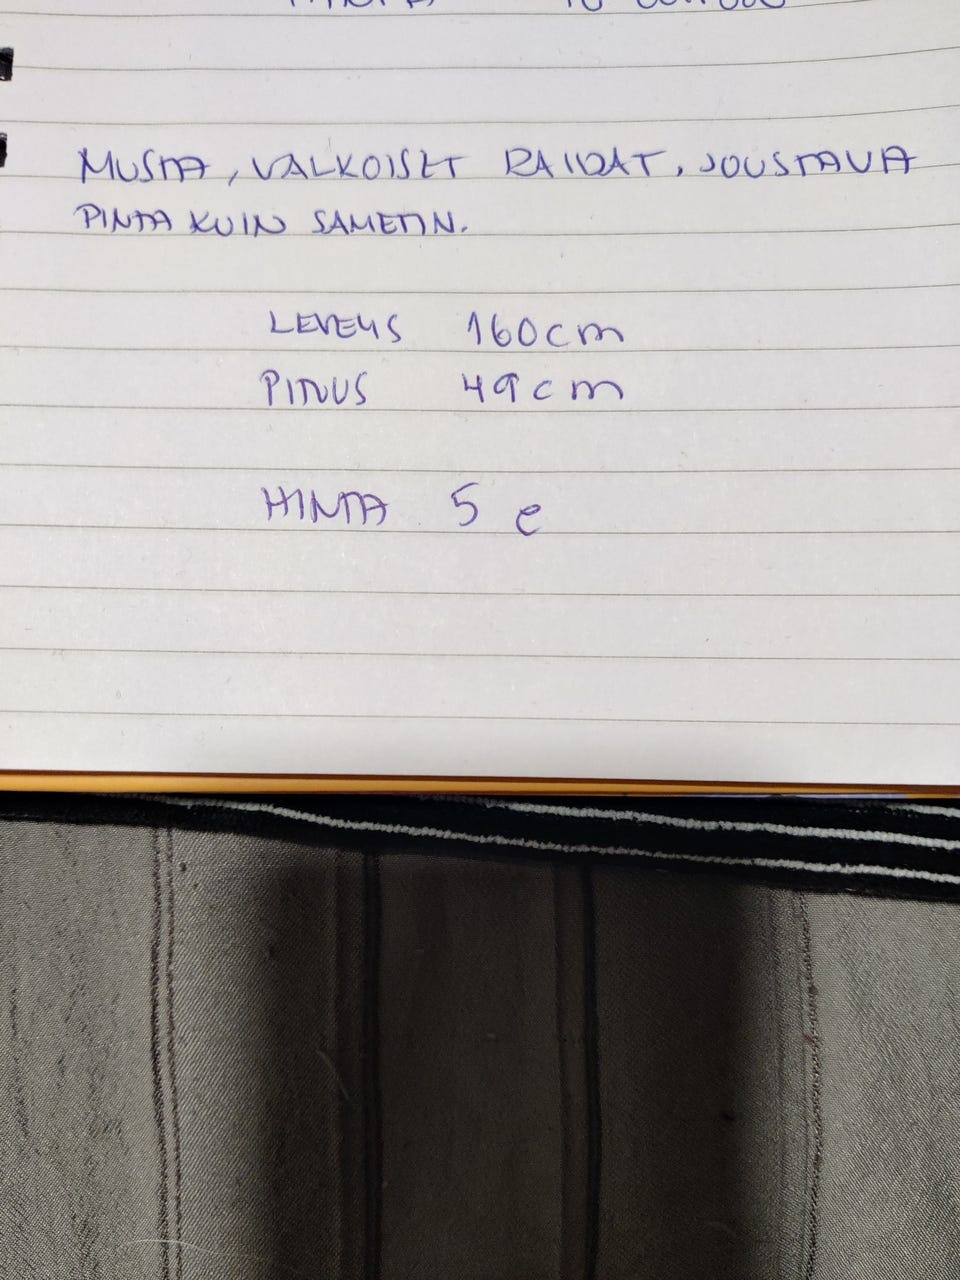 MUSTA, VALKOISET RAIDAT, JOUSTAVA
PINTA KUIN SAMETIN.
LEVEYS 160cm
PITUUS 49cm
HINTA 5 e